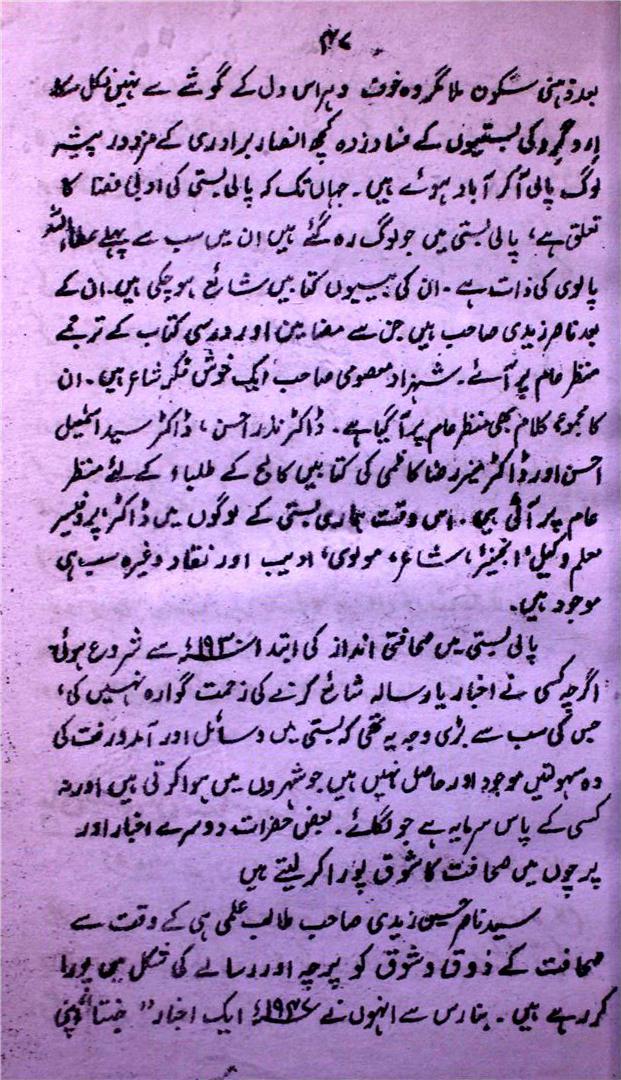 ۴۷
بعد ذہنی سکون ملا مگر وہ خوف و ہراس دل کے گوشے سے نہیں نکل سکا
ارد گرد کی بستیوں کے فساد زدہ کچھ انصار برادری کے مزدور پیشہ
لوگ پالی آ کر آباد ہوئے ہیں۔ جہاں تک کہ پالی بستی کی ادبی فضا کا
تعلق ہے، پالی بستی میں جو لوگ رہ گئے ہیں ان میں سب سے پہلے عطاء اللہ
پالوی کی ذات ہے۔ ان کی بیسیوں کتابیں شائع ہو چکی ہیں۔ ان کے
بعد ناصر زیدی صاحب ہیں جن سے مضامین اور درسی کتاب کے ترجمے
منظر عام پر آئے۔ شہزاد معصومی صاحب ایک خوش فکر شاعر ہیں۔ ان
کا مجموعہ کلام بھی منظر عام پر آ گیا ہے۔ ڈاکٹر نادر احسن، ڈاکٹر سید اسمٰعیل
احسن اور ڈاکٹر رضا کاظمی کی کتابیں کالج کے طلباء کے لئے منظر
عام پر آئی ہیں۔ اس وقت ہماری بستی کے لوگوں میں ڈاکٹر، پروفیسر
معلم وکیل، انجینئر، شاعر، مولوی، ادیب اور نقاد وغیرہ سب ہی
موجود ہیں۔
پالی بستی میں صحافتی انداز کی ابتدا ۱۹۳۰ء سے شروع ہوئی
اگرچہ کسی نے اخبار یا رسالہ شائع کرنے کی زحمت گوارہ نہیں کی،
جس کی سب سے بڑی وجہ یہ تھی کہ بستی میں وسائل اور آمد و رفت کی
وہ سہولتیں موجود اور حاصل نہیں ہیں جو شہروں میں ہوا کرتی ہیں اور نہ
کسی کے پاس سرمایہ ہے جو لگائے۔ بعض حضرات دوسرے اخبار اور
پرچوں میں صحافت کا شوق پورا کر لیتے ہیں
سید ناصر حسین زیدی صاحب طالب علمی ہی کے وقت سے
صحافت کے ذوق و شوق کو پرچہ اور رسالے کی شکل میں پورا
کر رہے ہیں۔ بنارس سے انہوں نے ۱۹۳۷ء ایک اخبار "جنتا" اپنی